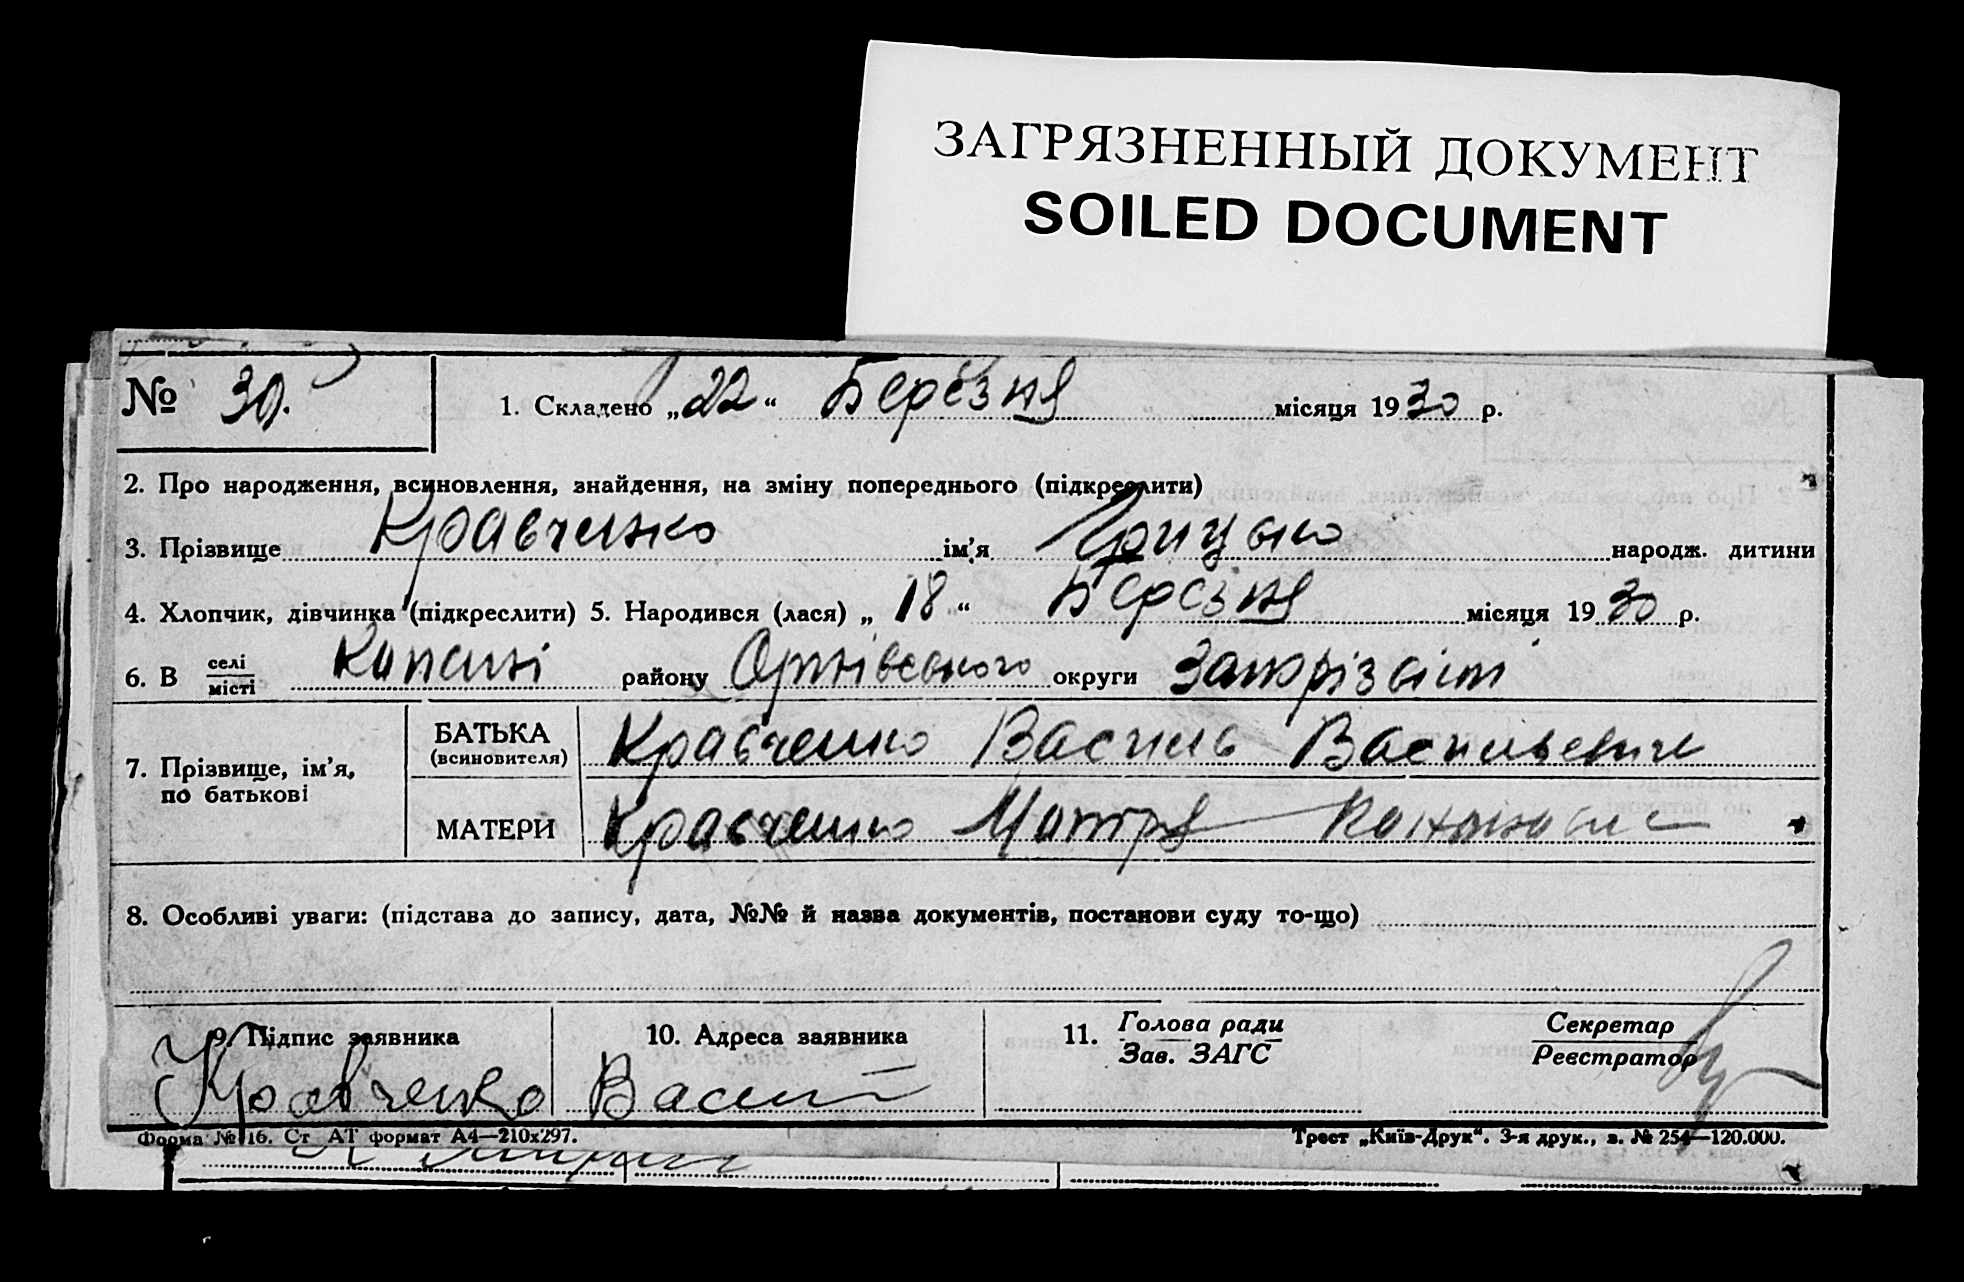 ЗАГРЯЗНЕННЫЙ ДОКУМЕНТ
SOILED DOCUMENT
№ 30.
1. Складено „22“ Березня місяця 1930 р.
2. Про народження, всиновлення, знайдення, на зміну попереднього (підкреслити)
3. Прізвище Кравченко ім’я Грицько народж. дитини
4. Хлопчик, дівчинка (підкреслити) 5. Народився (лася) „18“ Березня місяця 1930 р.
6. В селі місті Капані району округи
7. Прізвище, ім’я, по батькові
БАТЬКА (всиновителя) Кравченко Василь Васильевич
МАТЕРИ Кравченко Мотря
8. Особливі уваги: (підстава до запису, дата, №№ й назва документів, постанови суду то-що)
9. Підпис заявника
10. Адреса заявника
11. Голова ради Зав. ЗАГС
Секретар Реєстратор
Кравченко Васил
Форма № 16. Ст АТ формат А4—210х297.
Трест „Київ-Друк“. 3-я друк., з. № 254—120.000.